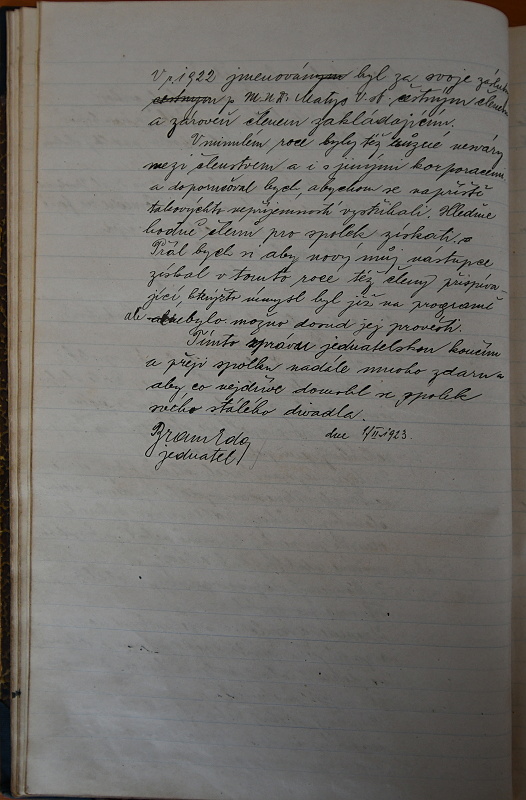 V r. 1922 jmenován byl za svoje zásluhy
čestným p. M.U.Dr. Matys V. st. čestným členem
a zároveň členem zakládajícím.
V minulém roce byly též různé nesváry
mezi členstvem a i s jinými korporacemi
a doporučoval bych, abychom se napříště
takovýchto nepříjemností vystříhali. Hleďme
hodně členů pro spolek získati.
Přál bych si aby nový můj nástupce
získal v tomto roce též členy přispíva-
jící, kterýžto úmysl byl již na programě
ale nebylo možno dosud jej provésti.
Tímto zprávu jednatelskou končím
a přeji spolku nadále mnoho zdaru a
aby co nejdříve domohl se spolek
svého stálého divadla.
dne 1/II. 1923.
jednatel